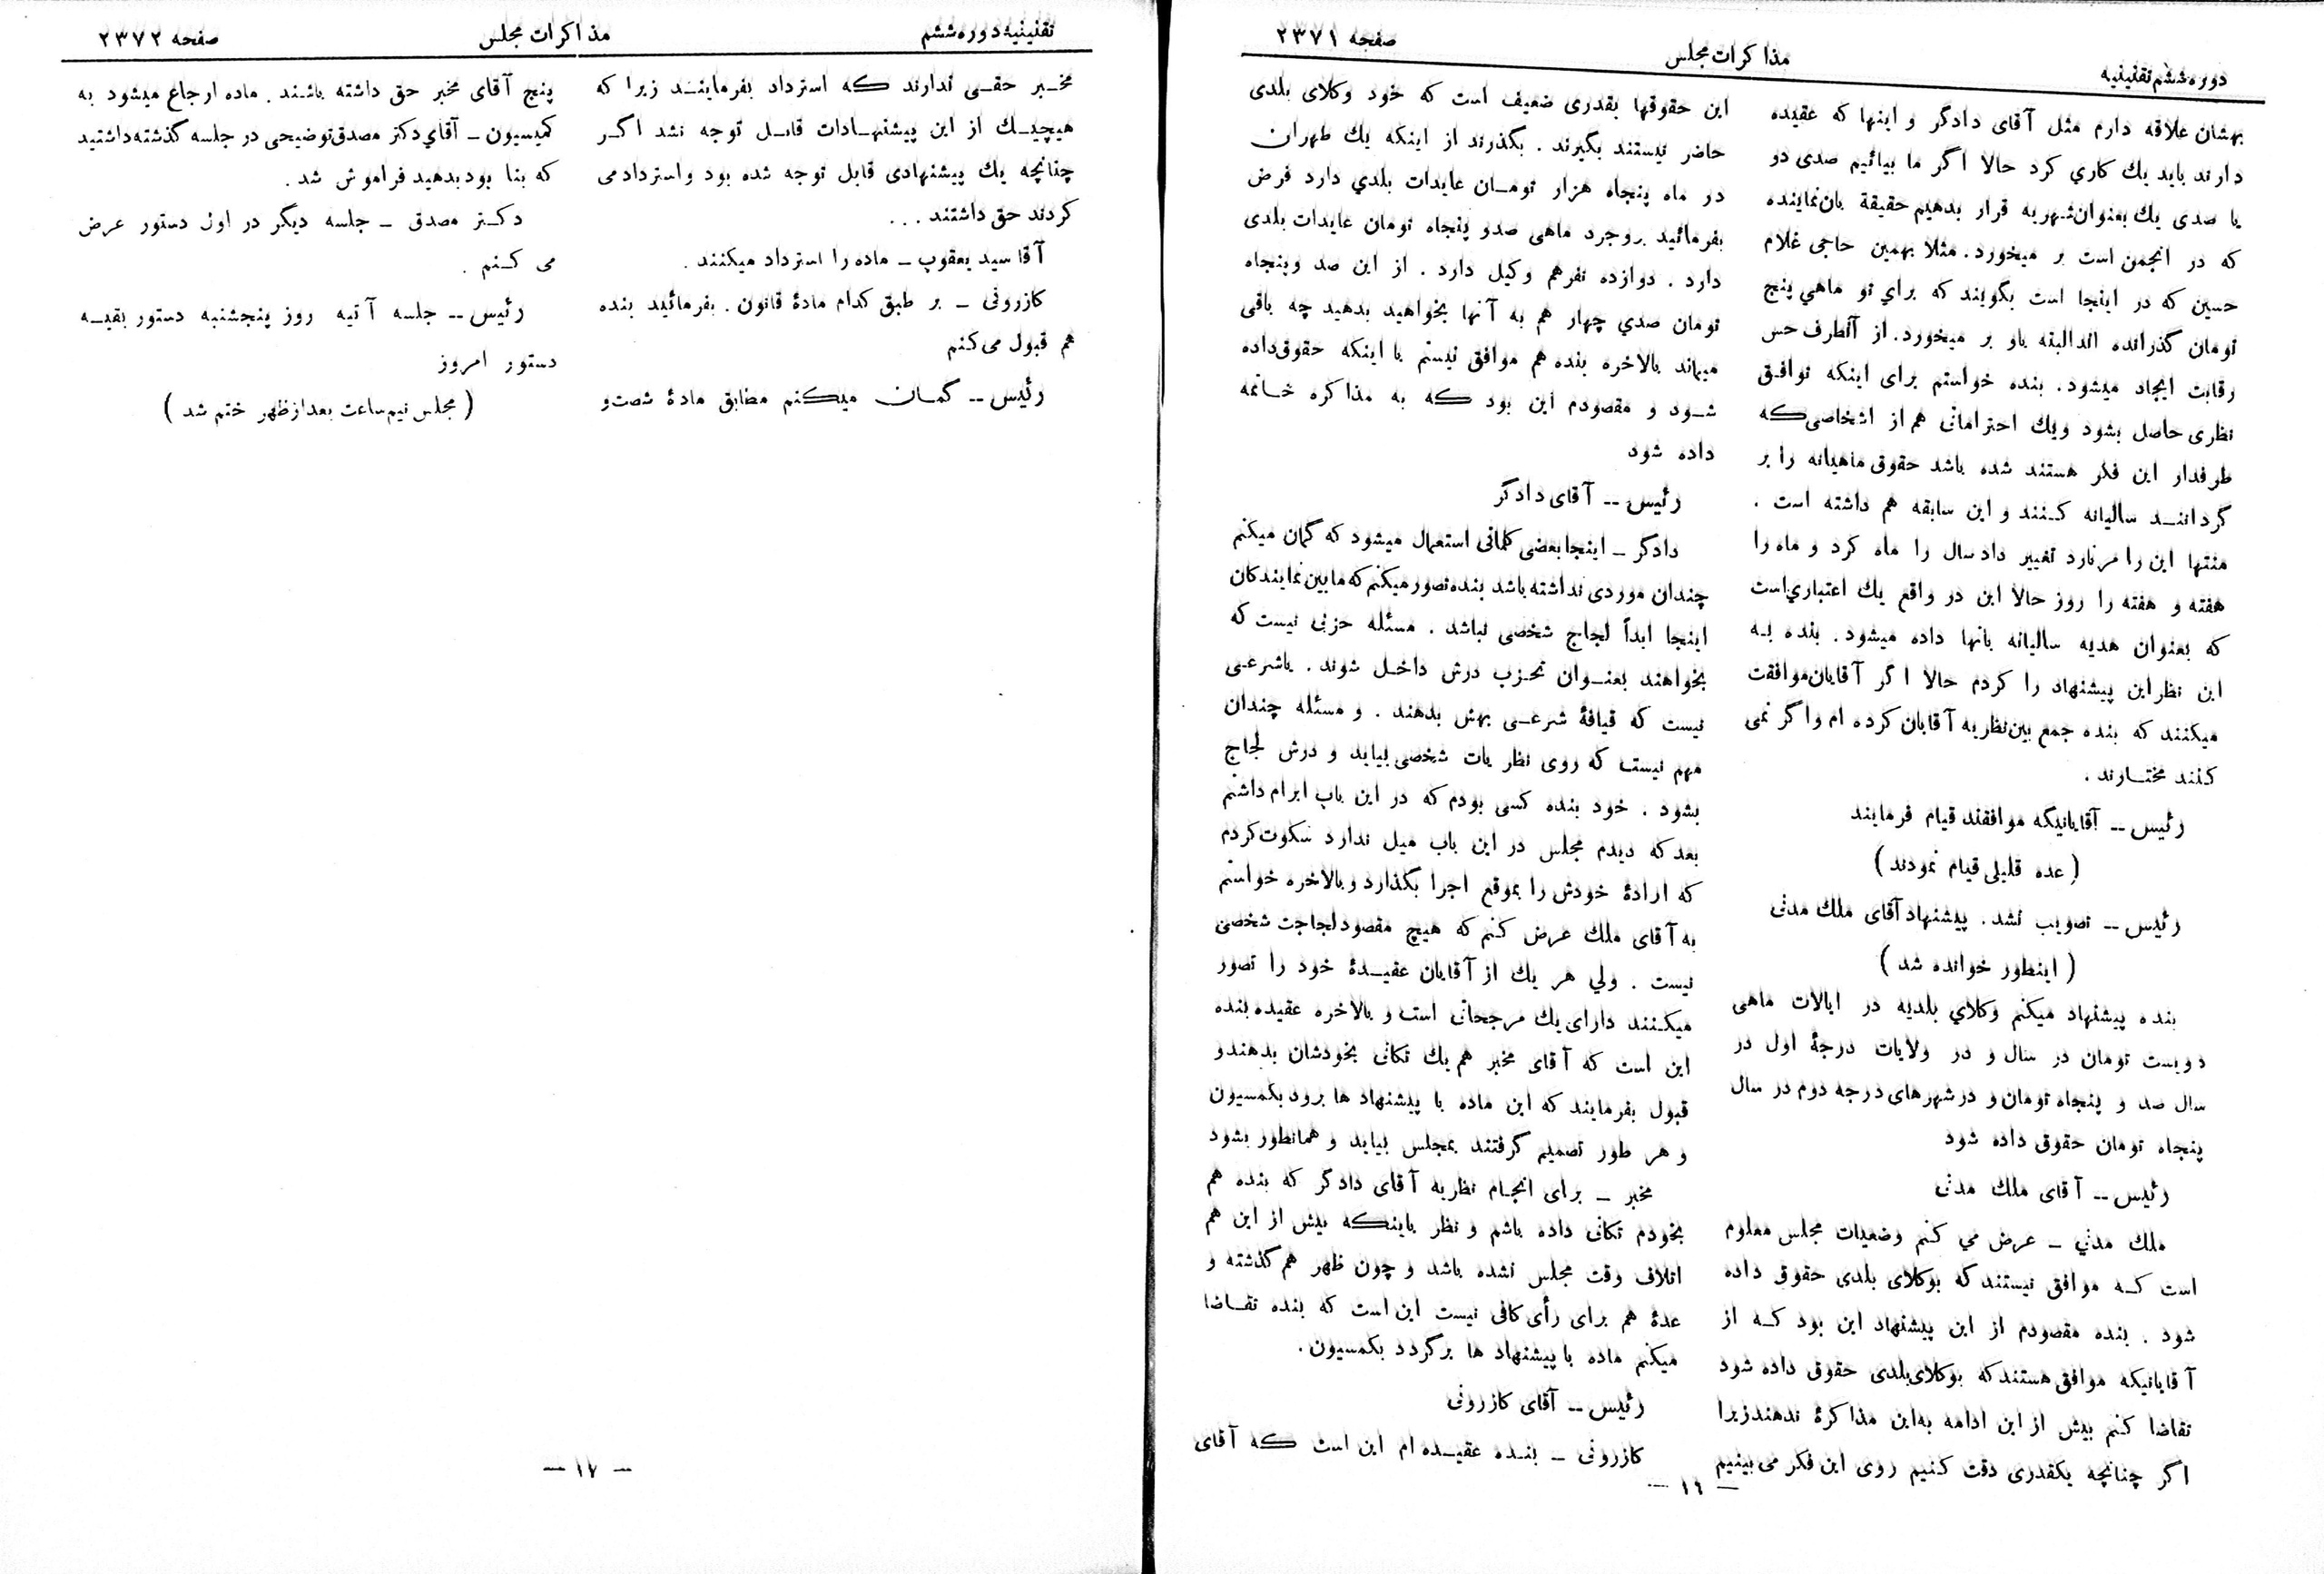 دوره ششم تقنینیه
مذاکرات مجلس
صفحه ۲۳۷۱
بهشان علاقه دارم مثل آقای دادگر و اینها که عقیده
دارند باید یك کاري کرد حالا اگر ما بیائیم صدی دو
یا صدی یك بعنوان شهریه قرار بدهیم حقیقة بان نماینده
که در انجمن است بر میخورد. مثلا بهمین حاجی غلام
حسین که در اینجا است بگویند که براي تو ماهي پنج
تومان گذرانده اند البته باو بر میخورد. از آنطرف حس
رقابت ایجاد میشود. بنده خواستم برای اینکه توافق
نظری حاصل بشود ویك احتراماتی هم از اشخاصی که
طرفدار این فکر هستند شده باشد حقوق ماهیانه را بر
گردانند سالیانه کنند و این سابقه هم داشته است .
منتها این را مرنارد تغییر داد سال را ماه کرد و ماه را
هفته و هفته را روز حالا این در واقع یك اعتباري است
که بعنوان هدیه سالیانه بانها داده میشود. بنده به
این نظر این پیشنهاد را کردم حالا اگر آقایان موافقت
میکنند که بنده جمع بین نظریه آقایان کرده ام واگر نمی
کنند مختارند .
رئیس -- آقایانیکه موافقند قیام فرمایند
( عده قلیلی قیام نمودند )
رئیس -- تصویب نشد. پیشنهاد آقای ملك مدنی
( اینطور خوانده شد )
بنده پیشنهاد میکنم وکلاي بلدیه در ایالات ماهی
دویست تومان در سال و در ولایات درجهٔ اول در
سال صد و پنجاه تومان و در شهرهای درجه دوم در سال
پنجاه تومان حقوق داده شود
رئیس -- آقای ملك مدنی
ملك مدنی – عرض مي کنم وضعیات مجلس معلوم
است که موافق نیستند که بوکلای بلدی حقوق داده
شود . بنده مقصودم از این پیشنهاد این بود که از
آقایانیکه موافق هستند که بوکلای بلدی حقوق داده شود
تقاضا کنم بیش از این ادامه به این مذاکرهٔ ندهند زیرا
اگر چنانچه یکقدری دقت کنیم روی این فکر می بینیم
این حقوقها بقدری ضعیف است که خود وکلای بلدی
حاضر نیستند بگیرند . بگذرند از اینکه یك طهران
در ماه پنجاه هزار تومان عایدات بلدي دارد فرض
بفرمائید بروجرد ماهی صدو پنجاه تومان عایدات بلدی
دارد . دوازده نفرهم وکیل دارد . از این صد وپنجاه
تومان صدي چهار هم به آنها بخواهید بدهید چه باقی
میماند بالاخره بنده هم موافق نیستم با اینکه حقوق داده
شود و مقصودم این بود که به مذاکره خاتمه
داده شود
رئیس -- آقای دادگر
دادگر – اینجا بعضی کلماتی استعمال میشود که گمان میکنم
چندان موردی نداشته باشد بنده تصور میکنم که ما بین نمایندگان
اینجا ابداً لجاج شخصی نباشد . مسئله حزبی نیست که
بخواهند بعنوان تحزب درش داخل شوند . یا شرعی
نیست که قیافهٔ شرعی بهش بدهند . و مسئله چندان
مهم نیست که روی نظریات شخصی بیاید و درش لجاج
بشود . خود بنده کسی بودم که در این باب ابرام داشتم
بعد که دیدم مجلس در این باب میل ندارد سکوت کردم
که ارادهٔ خودش را بموقع اجرا بگذارد و بالاخره خواستم
به آقای ملك عرض کنم که هیچ مقصود لجاجت شخصی
نیست . ولي هر یك از آقایان عقیدهٔ خود را تصور
میکنند دارای یك مرجحاتی است و بالاخره عقیده بنده
این است که آقای مخبر هم یك تکانی بخودشان بدهند و
قبول بفرمایند که این ماده با پیشنهاد ها برود بکمسیون
و هر طور تصمیم گرفتند بمجلس بیاید و همانطور بشود
مخبر – برای انجام نظریه آقای دادگر که بنده هم
بخودم تکانی داده باشم و نظر باینکه بیش از این هم
اتلاف وقت مجلس نشده باشد و چون ظهر هم گذشته و
عدهٔ هم برای رأی کافی نیست این است که بنده تقاضا
میکنم ماده با پیشنهاد ها برگردد بکمسیون.
رئیس -- آقای کازرونی
کازرونی – بنده عقیده ام این است که آقای
— ١٦ —
تقنینیه دوره ششم
مذاکرات مجلس
صفحه ۲۳۷۲
مخبر حقی ندارند که استرداد بفرمایند زیرا که
هیچیك از این پیشنهادات قابل توجه نشد اگر
چنانچه یك پیشنهادی قابل توجه شده بود واسترداد می
کردند حق داشتند . . .
آقا سید یعقوب – ماده را استرداد میکنند .
کازرونی – بر طبق کدام مادهٔ قانون . بفرمائید بنده
هم قبول می کنم
رئیس -- گمان میکنم مطابق مادهٔ شصت و
پنج آقای مخبر حق داشته باشند . ماده ارجاع میشود به
کمیسیون – آقاي دکتر مصدق توضیحی در جلسه گذشته داشتید
که بنا بود بدهید فراموش شد .
دکتر مصدق – جلسه دیگر در اول دستور عرض
می کنم .
رئیس -- جلسه آتیه روز پنجشنبه دستور بقیه
دستور امروز
( مجلس نیم ساعت بعد از ظهر ختم شد )
— ١٧ —